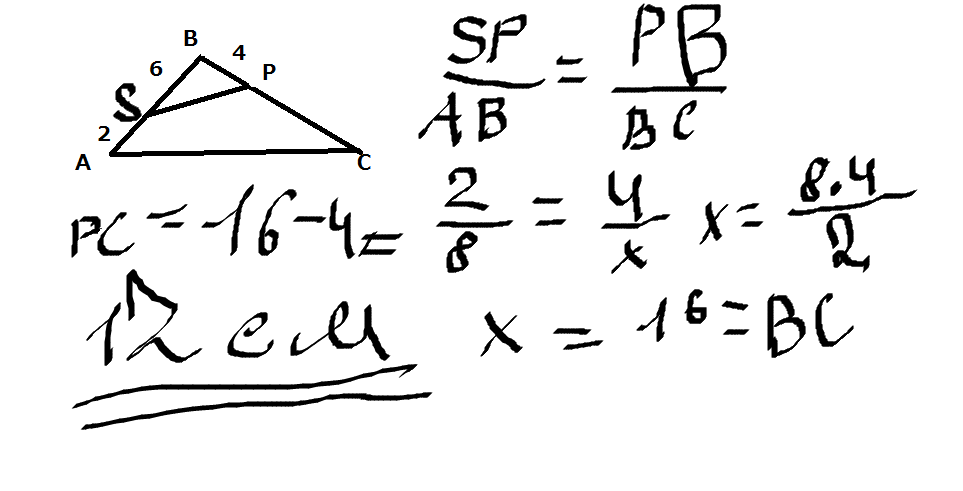 B 4
6 P
S
2
A C
SP/AB = PB/BC
PC = 16-4 =
2/8 = 4/x x = 8.4/2
12 см x = 16 = BC